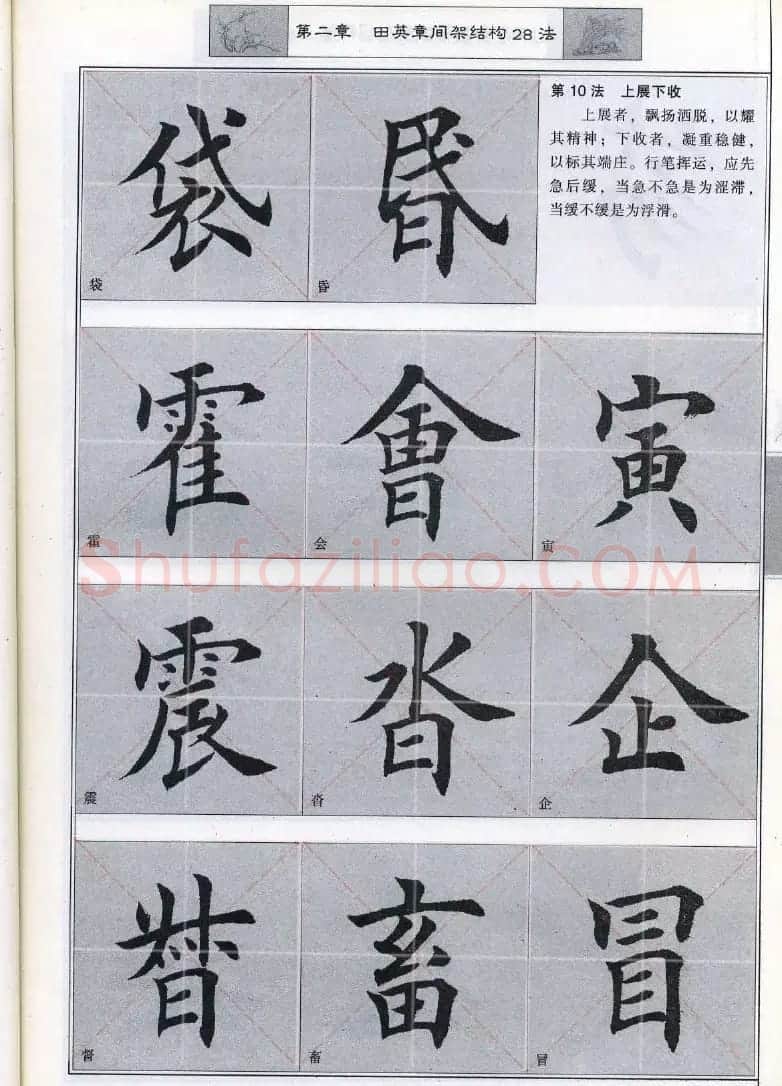 第二章 田英章间架结构28法
第10法 上展下收
上展者，飘扬洒脱，以耀
其精神；下收者，凝重稳健，
以标其端庄。行笔挥运，应先
急后缓，当急不急是为涩滞，
当缓不缓是为浮滑。
袋 昏
袋 昏
霍 會 寅
霍 会 寅
Shufaziliao.COM
震 沓 企
震 沓 企
督 畜 冒
督 畜 冒